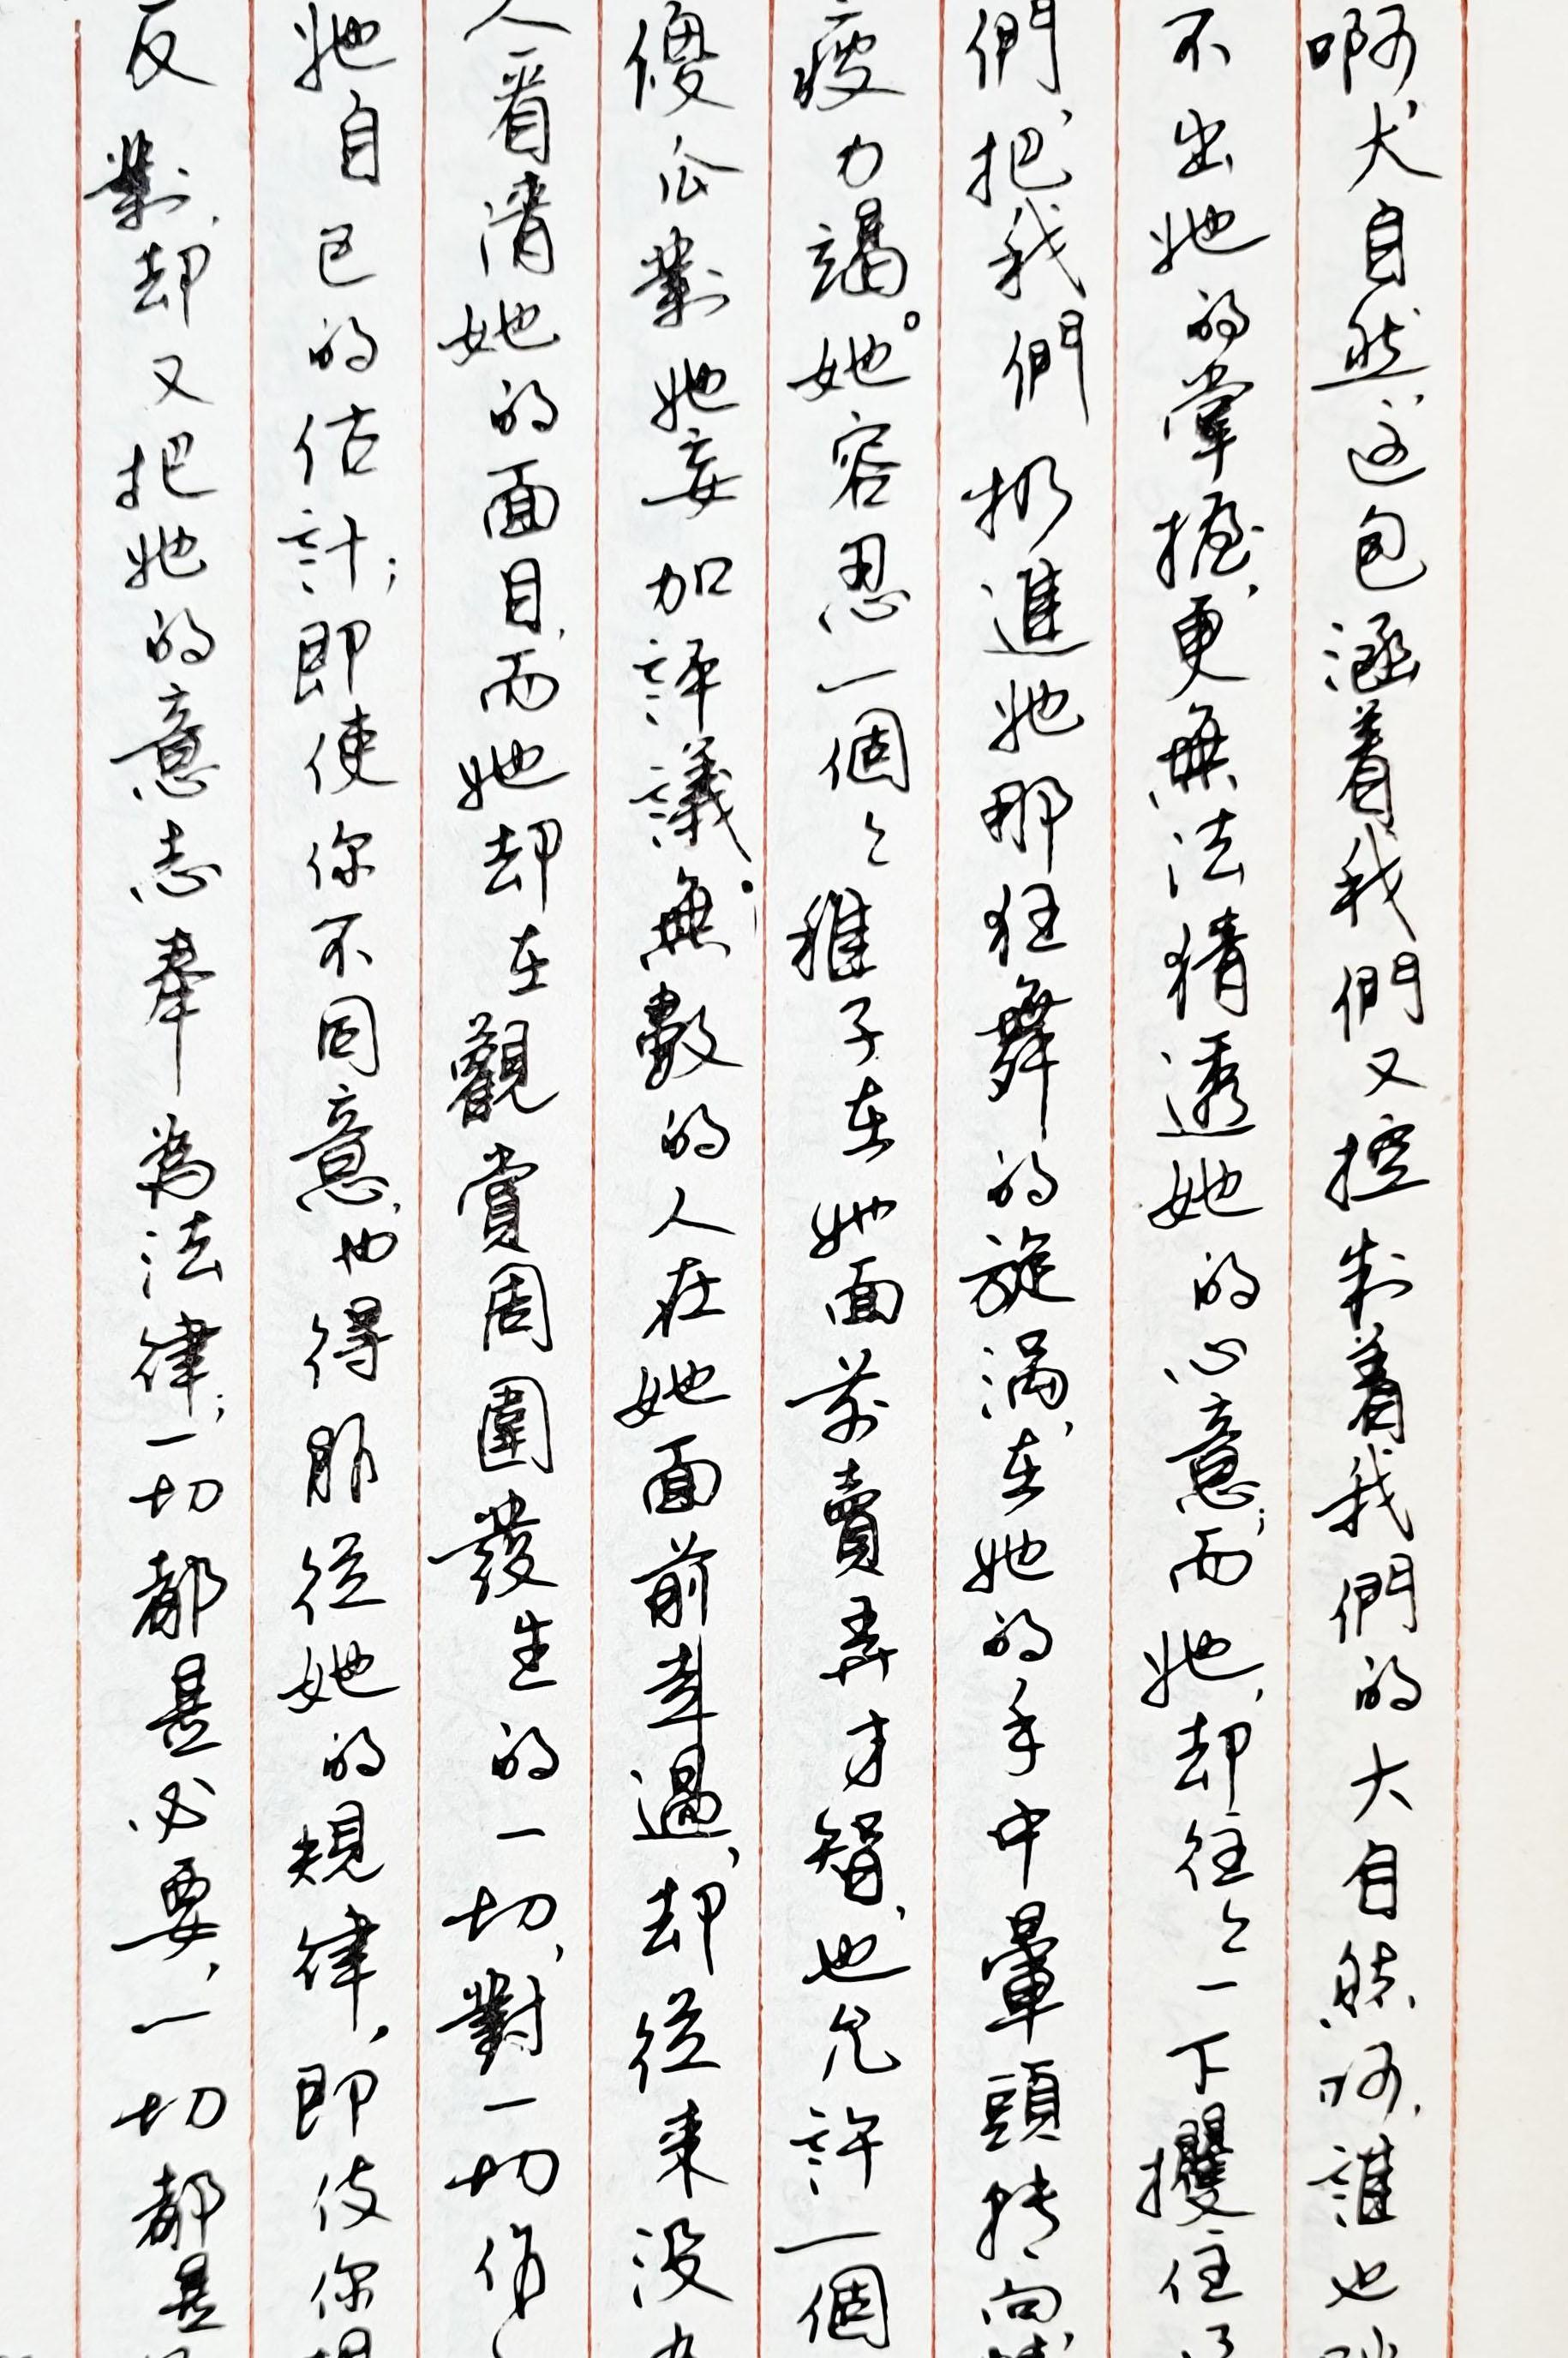 啊,大自然,这包涵着我們又控制着我們的大自然啊,誰也
不出她的掌握,更無法猜透她的心意;而她,却往々一下攫住
們,把我們扔進她那狂舞的旋渦,在她的手中暈頭转向,
疲力竭。她容忍一個々稚子在她面前賣弄才智,也允許一個
傻瓜對她妄加評議。無數的人在她面前走過,却從来没
人看清她的面目,而她却在觀賞周圍發生的一切,對一切
她自己的估計;即使你不同意,也得服從她的規律,即使你
反對,却又把她的意志奉為法律;一切都是必要,一切都是